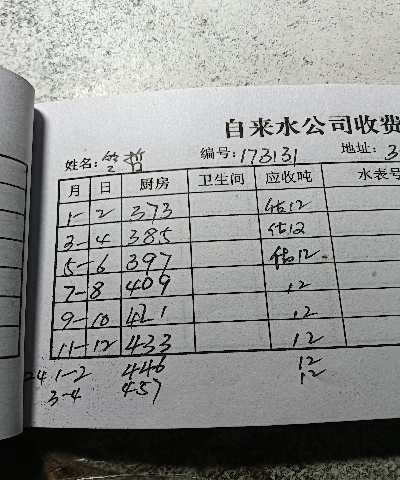 自来水公司收费
姓名: 哲 编号: 173131 地址: 3
月 日 厨房 卫生间 应收吨 水表号
1-2 373 估12
3-4 385 估12
5-6 397 估12
7-8 409 12
9-10 421 12
11-12 433 12
24 1-2 446 12
3-4 457 12